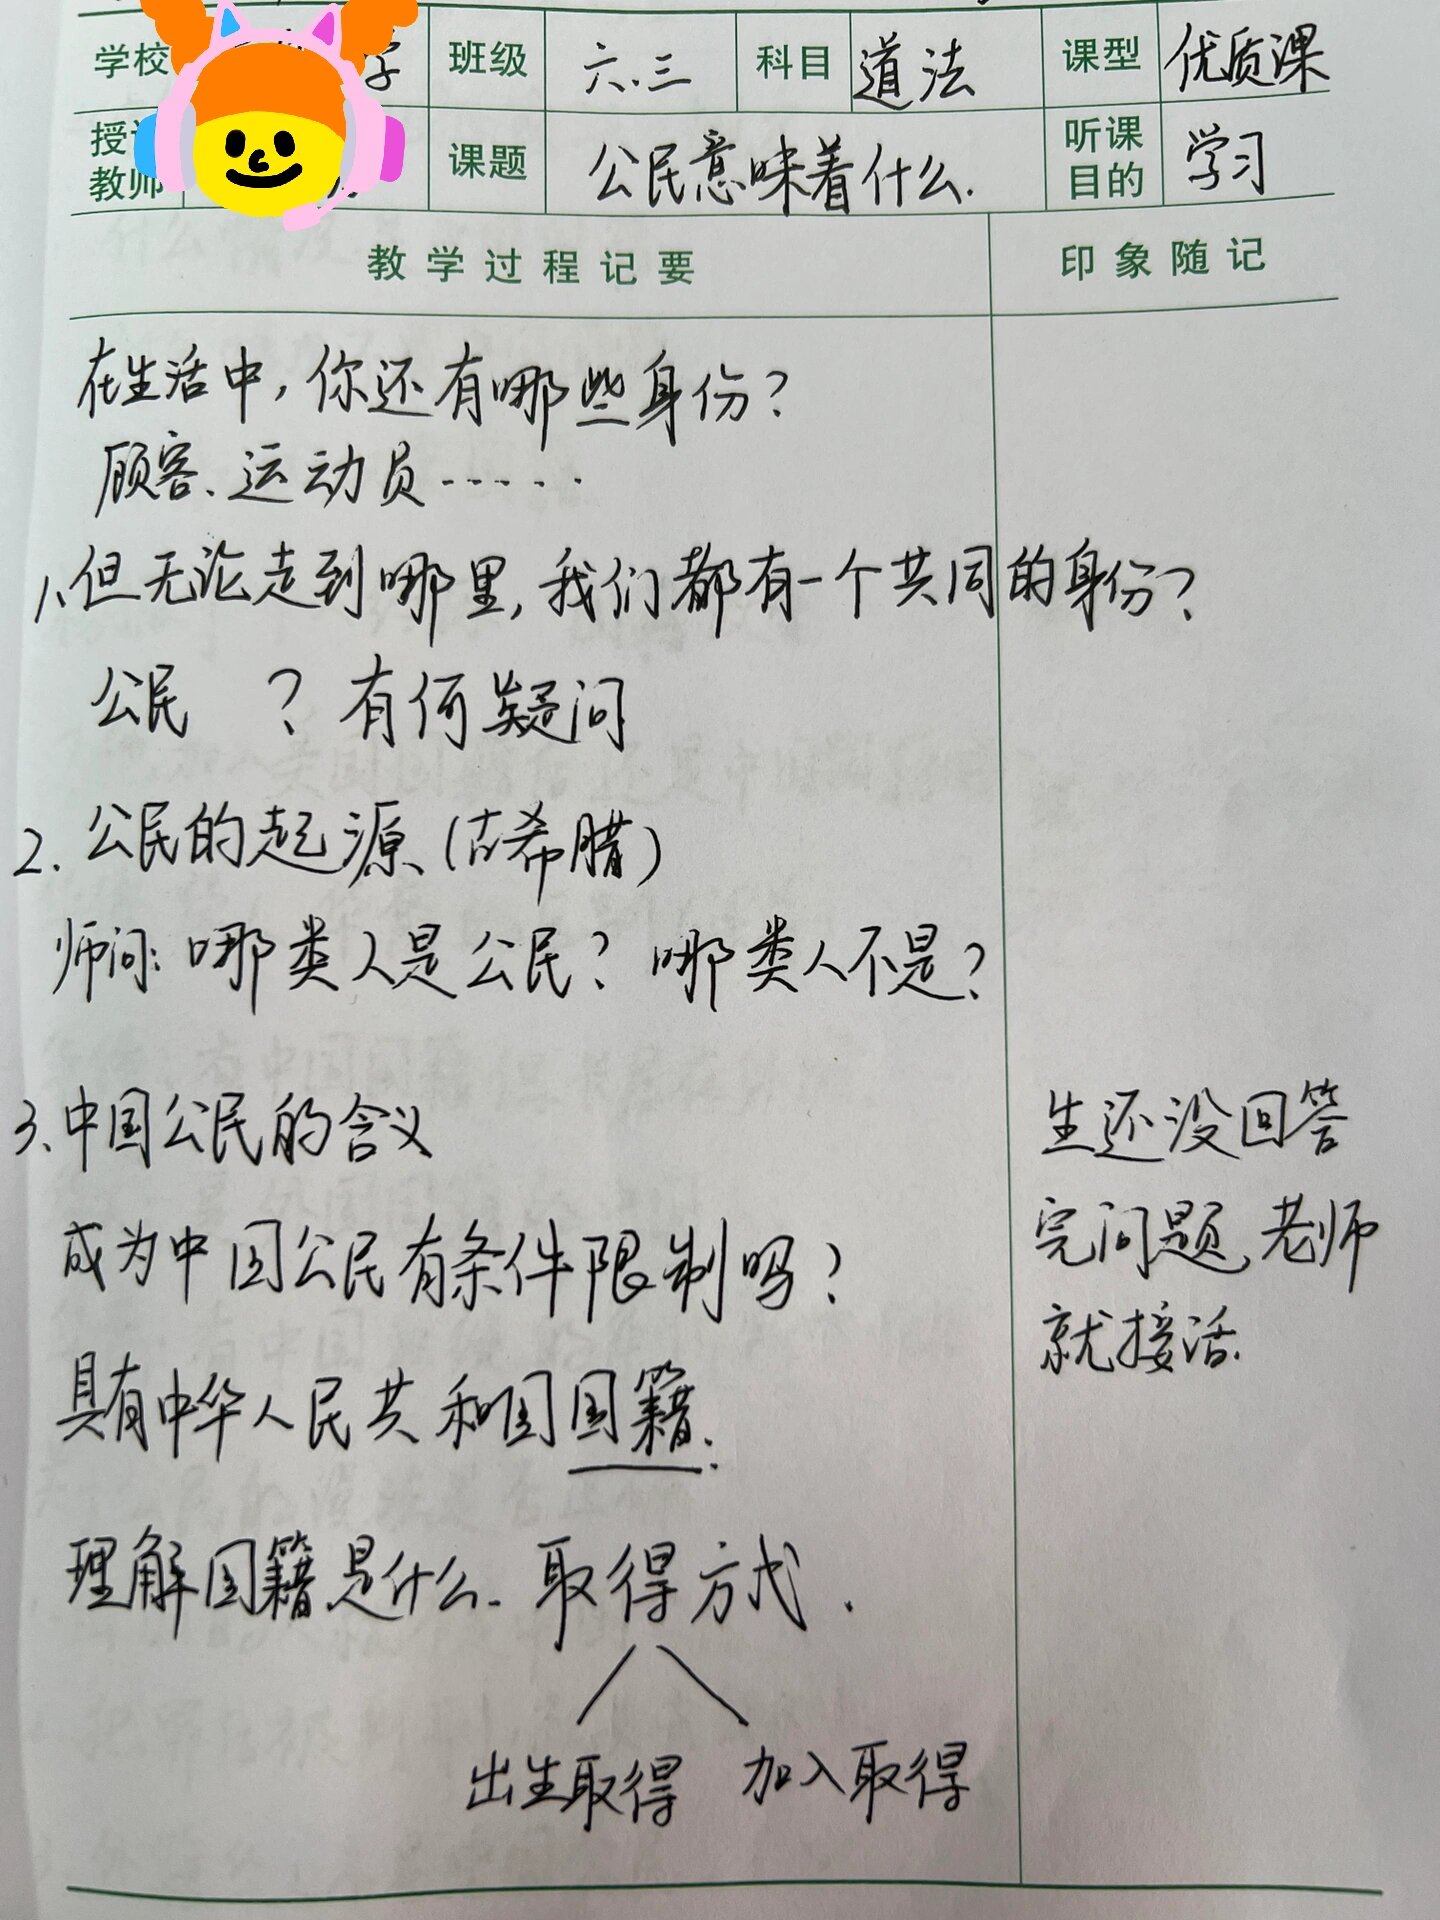 学校 班级 六.三 科目 道法 课型 优质课
教师 课题 公民意味着什么. 听课目的 学习
教学过程记要 印象随记
在生活中,你还有哪些身份?
顾客、运动员……
1、但无论走到哪里,我们都有一个共同的身份?
公民 ? 有何疑问
2. 公民的起源、(古希腊)
师问:哪类人是公民?哪类人不是?
3、中国公民的含义
成为中国公民有条件限制吗?
具有中华人民共和国国籍.
理解国籍是什么. 取得方式.
出生取得 加入取得
生还没回答
完问题,老师
就接话.